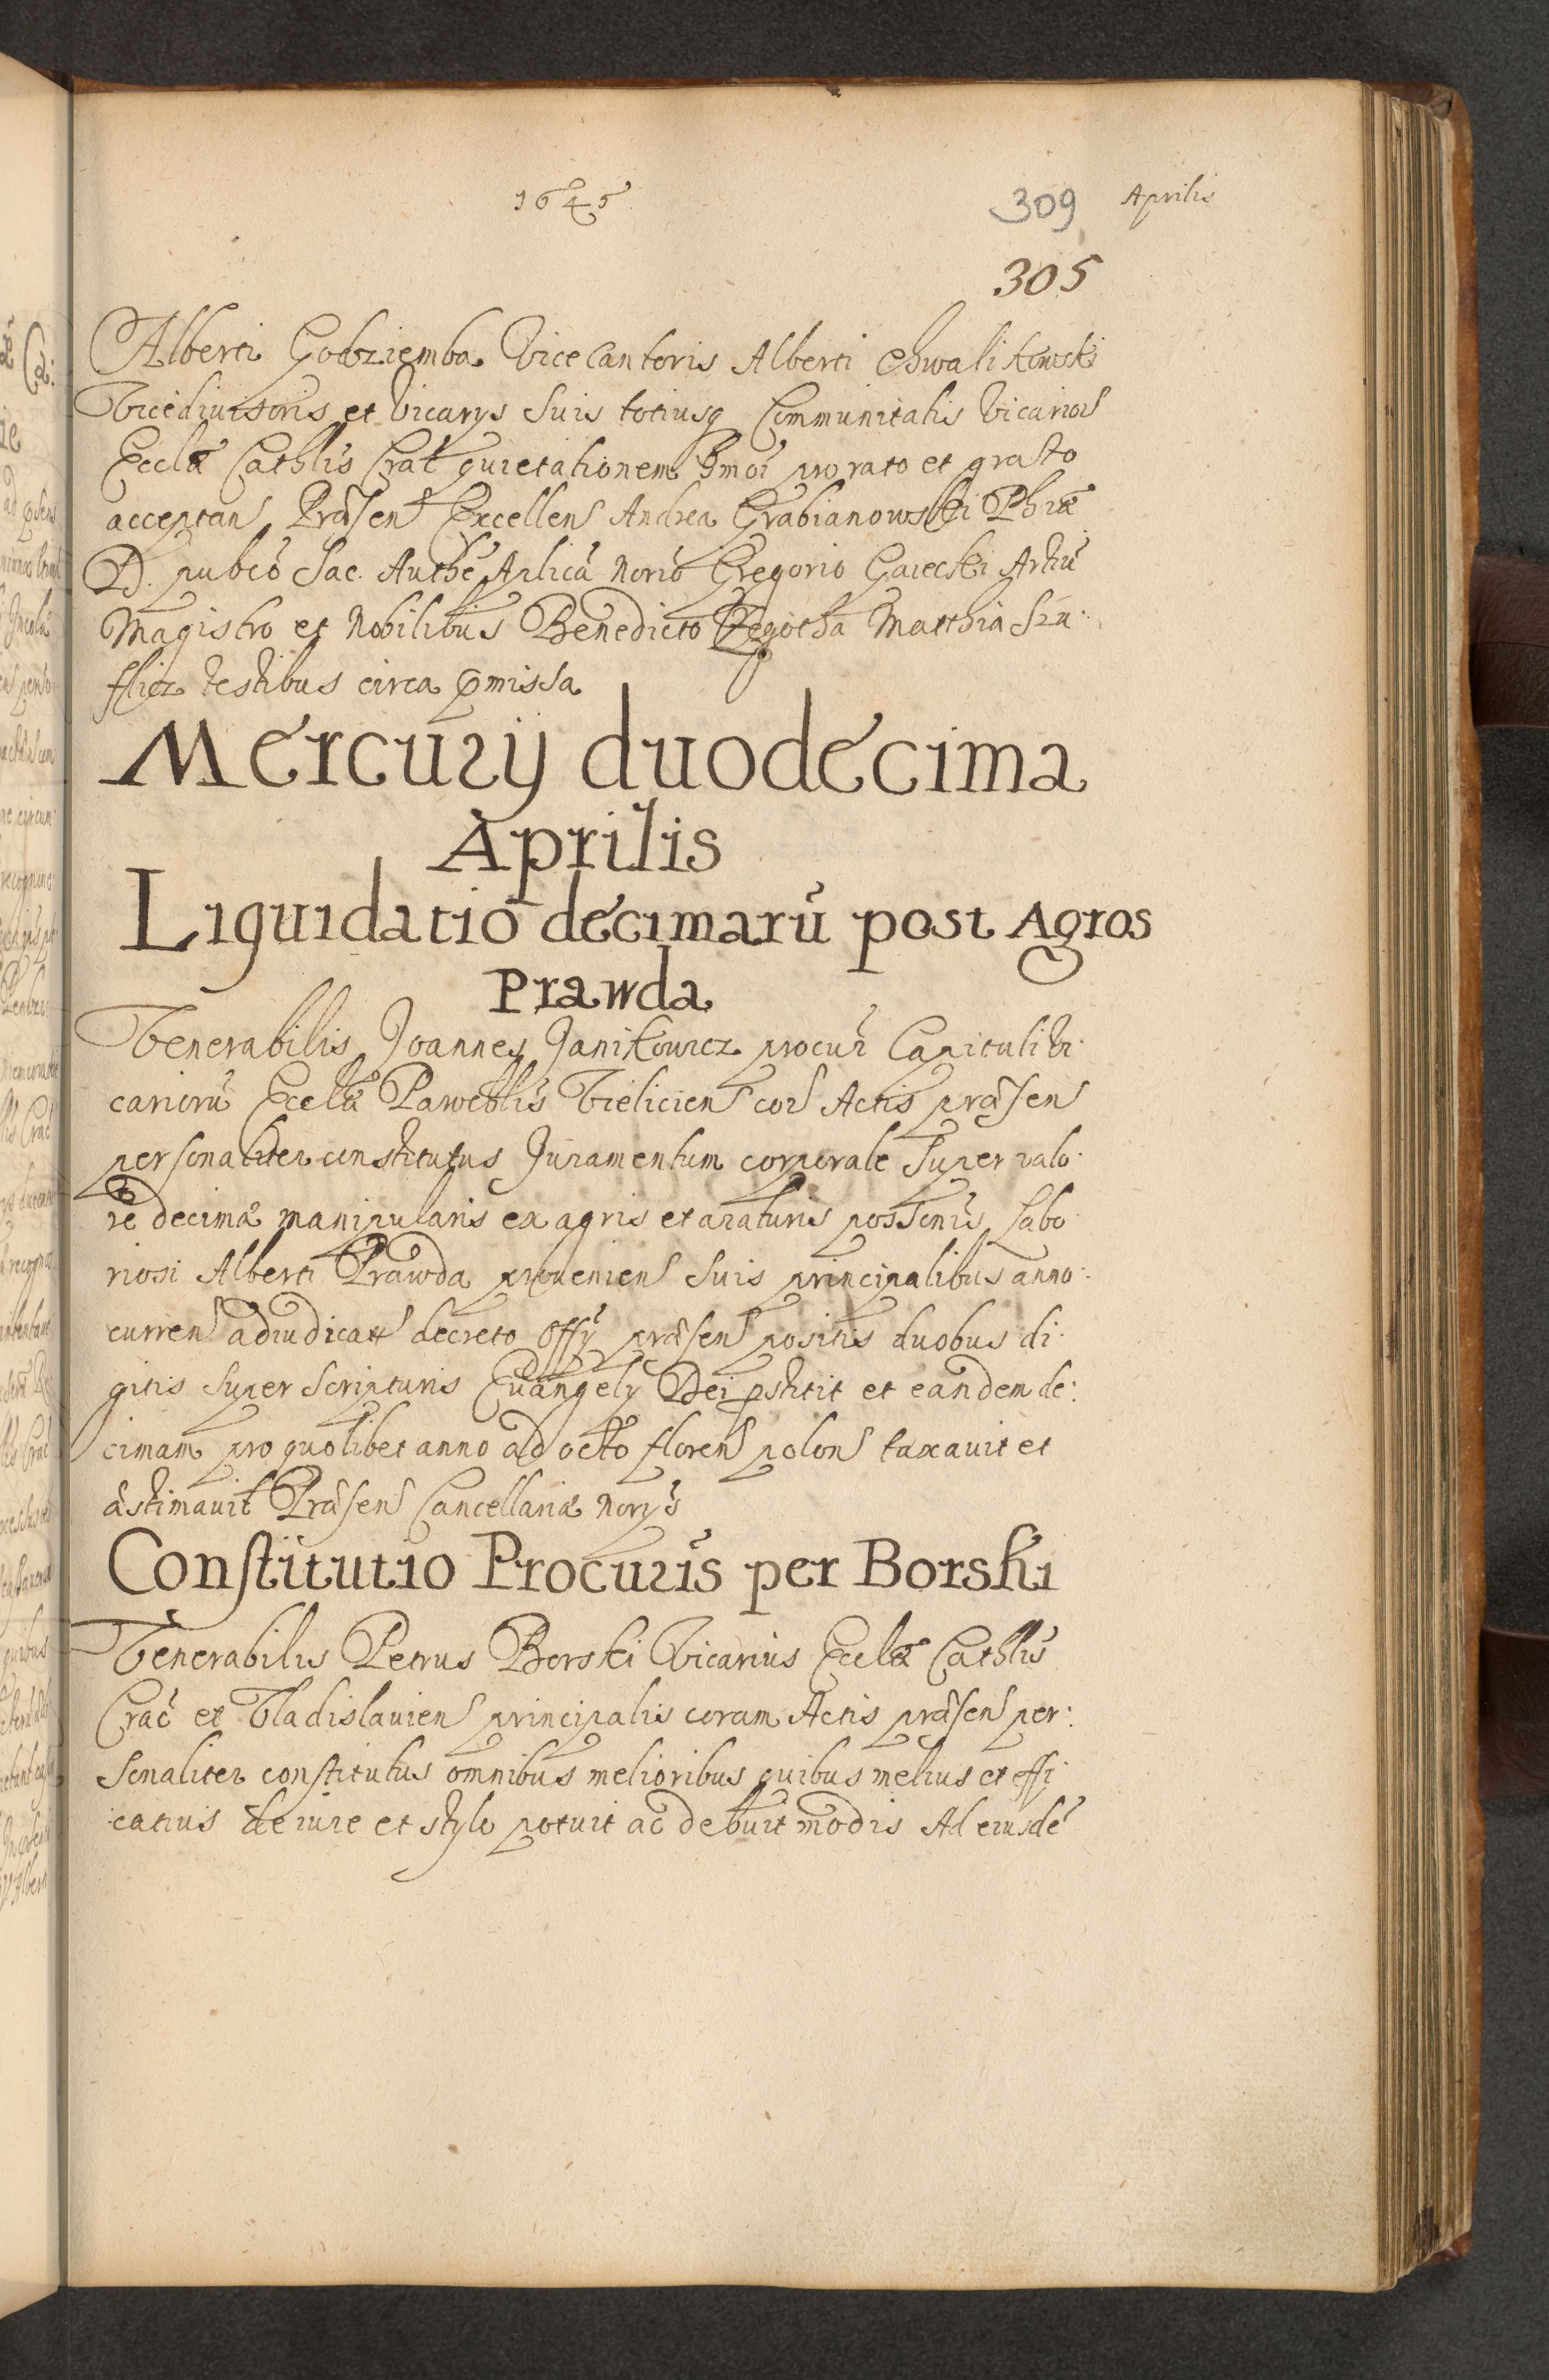 1645
309 Aprilis
305
Alberti Godziemba Vicecantoris Alberti Chwalikowski
Vicedivisoris et Vicarijs suis totiusq Communitatis Vicarior
Eccłæ Cathłis Crac quietationem hmoi pro rato et grato
acceptan Præsen Excellen Andrea Grabianowski Phiæ
D. pubco Sac. Authe Aplica Norio Gregorio Gaiecski Artiũ
Magistro et Nobilibus Benedicto Zegotha Matthia Szu:
fflicz testibus circa pmissa
Mercurij duodecima
Aprilis
Liquidatio decimarũ post Agros
Prawda
Venerabilis Joannes Janikowicz procur Capituli Vi:
cariorũ Eccłæ Parochłis Vielicien cor Actis præsen
personaliter constitutus Juramentum corporale super valo:
re decimæ manipularis ex agris et araturis possonis Labo:
riosi Alberti Prawda provenien suis principalibus anno:
curren adiudicatt decreto Offÿ præsen positis duobus di:
gitis super Scripturis Evangelÿ Dei pstitit et eandem de:
cimam pro quolibet anno ad octo floren polon taxavit et
æstimavit Præsen Cancellariæ Norÿs
Constitutio Procuris per Borski
Venerabilis Petrus Borski Vicarius Eccłæ Cathłis
Crac et Vladislavien principalis coram Actis præsen per:
sonaliter constitutus omnibus melioribus quibus melius et effi:
catius de iure et stylo potuit ac debuit modis Ad eiusdẽ